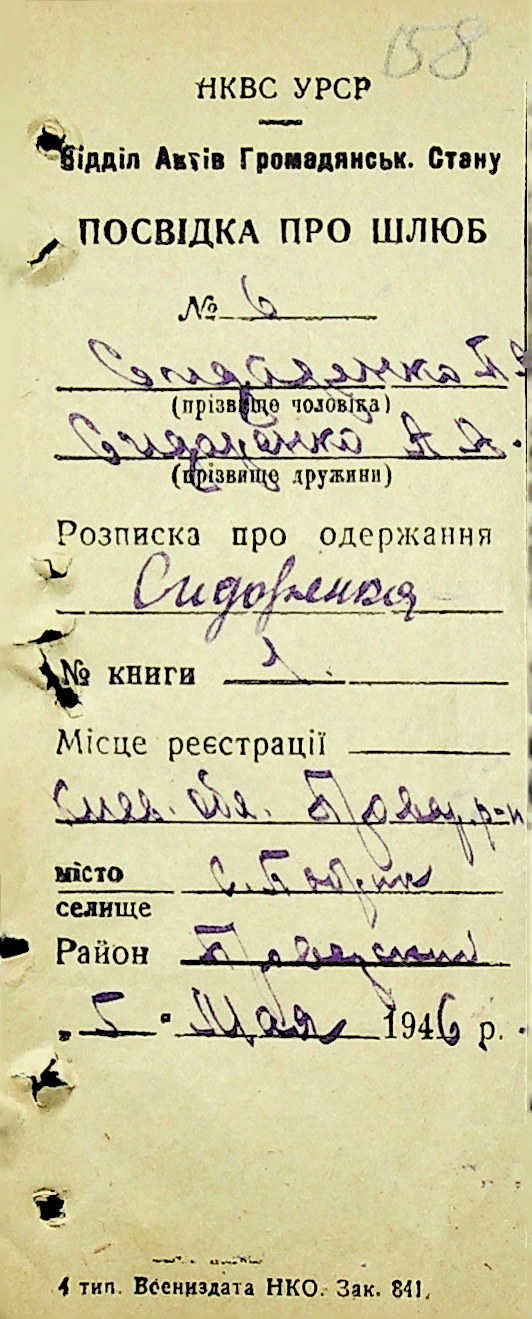 158
НКВС УРСР
Відділ Актів Громадянськ. Стану
ПОСВІДКА ПРО ШЛЮБ
№ 6
(прізвище чоловіка)
(прізвище дружини)
Розписка про одержання
Сидоренкоя
№ книги 1.
Місце реєстрації
обл. Бровар. р-н
місто
селище
Район Броварский
„5" Мая 1946 р.
4 тип. Воениздата НКО. Зак. 841.